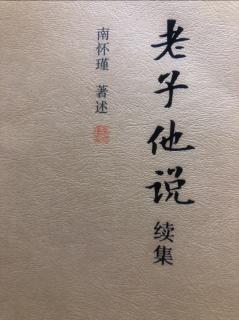 老子他说
续集
南怀瑾 著述